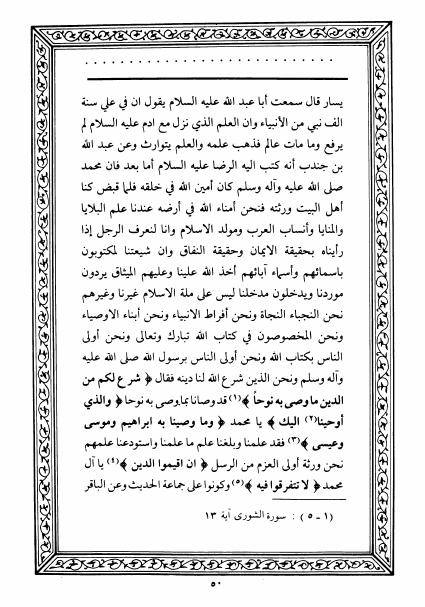 يسار قال سمعت أبا عبد الله عليه السلام يقول ان في علي سنة
الف نبي من الأنبياء وان العلم الذي نزل مع ادم عليه السلام لم
يرفع وما مات عالم فذهب علمه والعلم يتوارث وعن عبد الله
بن جندب أنه كتب اليه الرضا عليه السلام أما بعد فان محمد
صلى الله عليه وآله وسلم كان أمين الله في خلقه فلما قبض كنا
أهل البيت ورثته فنحن أمناء الله في أرضه عندنا علم البلايا
والمنايا وأنساب العرب ومولد الاسلام وانا لنعرف الرجل إذا
رأيناه بحقيقة الايمان وحقيقة النفاق وان شيعتنا لمكتوبون
باسمائهم وأسماء آبائهم أخذ الله علينا وعليهم الميثاق يردون
موردنا ويدخلون مدخلنا ليس على ملة الاسلام غيرنا وغيرهم
نحن النجباء النجاة ونحن أفراط الانبياء ونحن أبناء الاوصياء
ونحن المخصوصون في كتاب الله تبارك وتعالى ونحن أولى
الناس بكتاب الله ونحن أولى الناس برسول الله صلى الله عليه
وآله وسلم ونحن الذين شرع الله لنا دينه فقال ﴿ شرع لكم من
الدين ما وصى به نوحاً ﴾(١) قد وصانا بما يوصى به نوحا ﴿ والذي
أوحينا(٢) اليك ﴾ يا محمد ﴿ وما وصينا به ابراهيم وموسى
وعيسى ﴾(٣) فقد علمنا وبلغنا علم ما علمنا واستودعنا علمهم
نحن ورثة أولى العزم من الرسل ﴿ ان اقيموا الدين ﴾(٤) يا آل
محمد ﴿ لا تتفرقوا فيه ﴾(٥) وكونوا على جماعة الحديث وعن الباقر
(١ - ٥) : سورة الشورى آية ١٣
٥٠